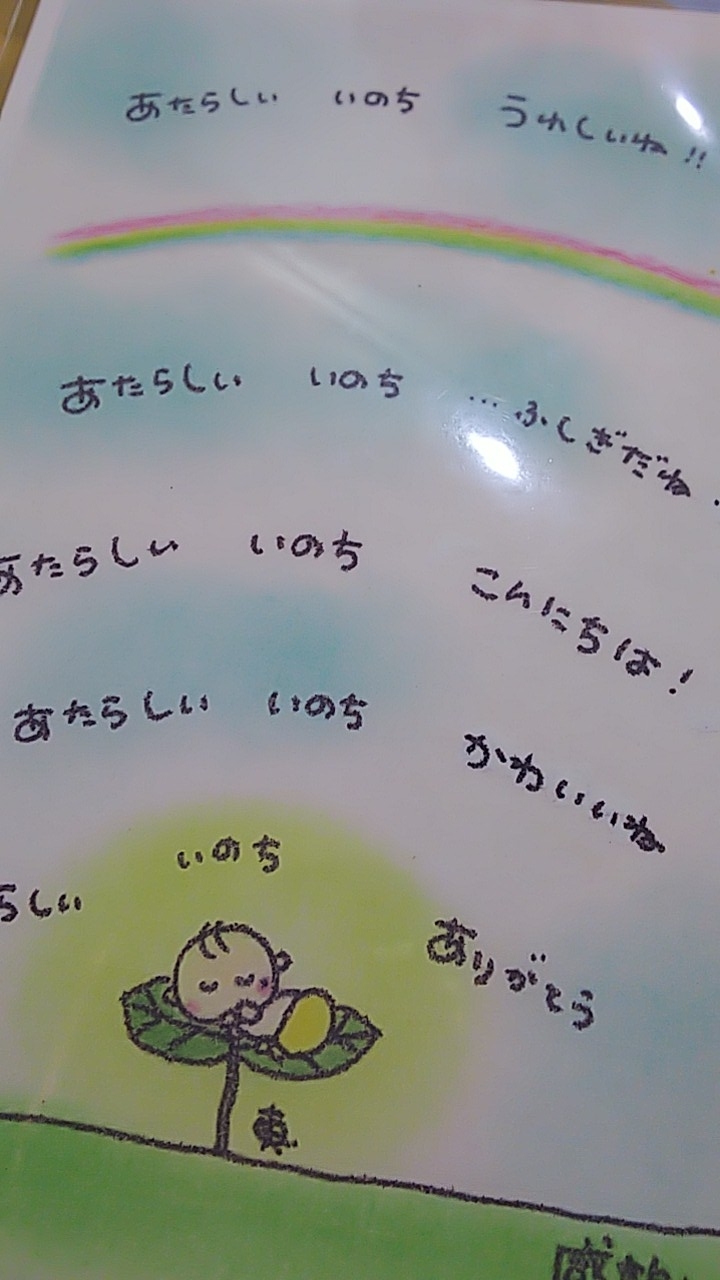 あたらしい いのち うれしいね!!
あたらしい いのち …ふしぎだね
あたらしい いのち こんにちは!
あたらしい いのち かわいいね
らしい いのち ありがとう